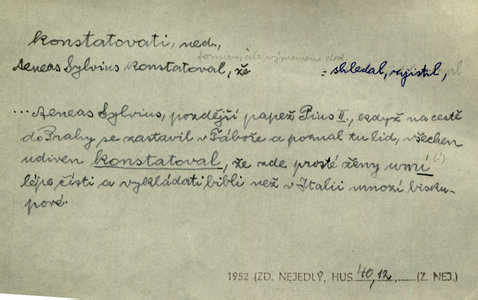 konstatovati, ned.
Aeneas Sylvius konstatoval, že : shledal, zjistil,
... Aeneas Sylvius, pozdější papež Pius II., když na cestě
do Prahy se zastavil v Táboře a poznal tu lid, všechen
udiven konstatoval, že zde prosté ženy umí (!)
lépe čísti a vykládati bibli než v Italii mnozí bisku-
pové.
1952 (ZD. NEJEDLÝ, HUS 40,12 (Z. NEJ.)